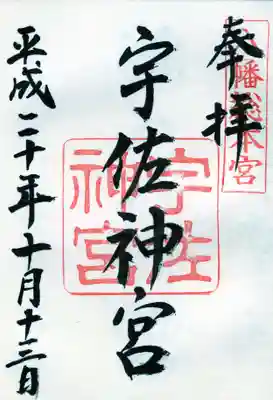 奉拝
八幡総本宮
宇佐神宮
宇佐神宮
平成二十年十月十三日